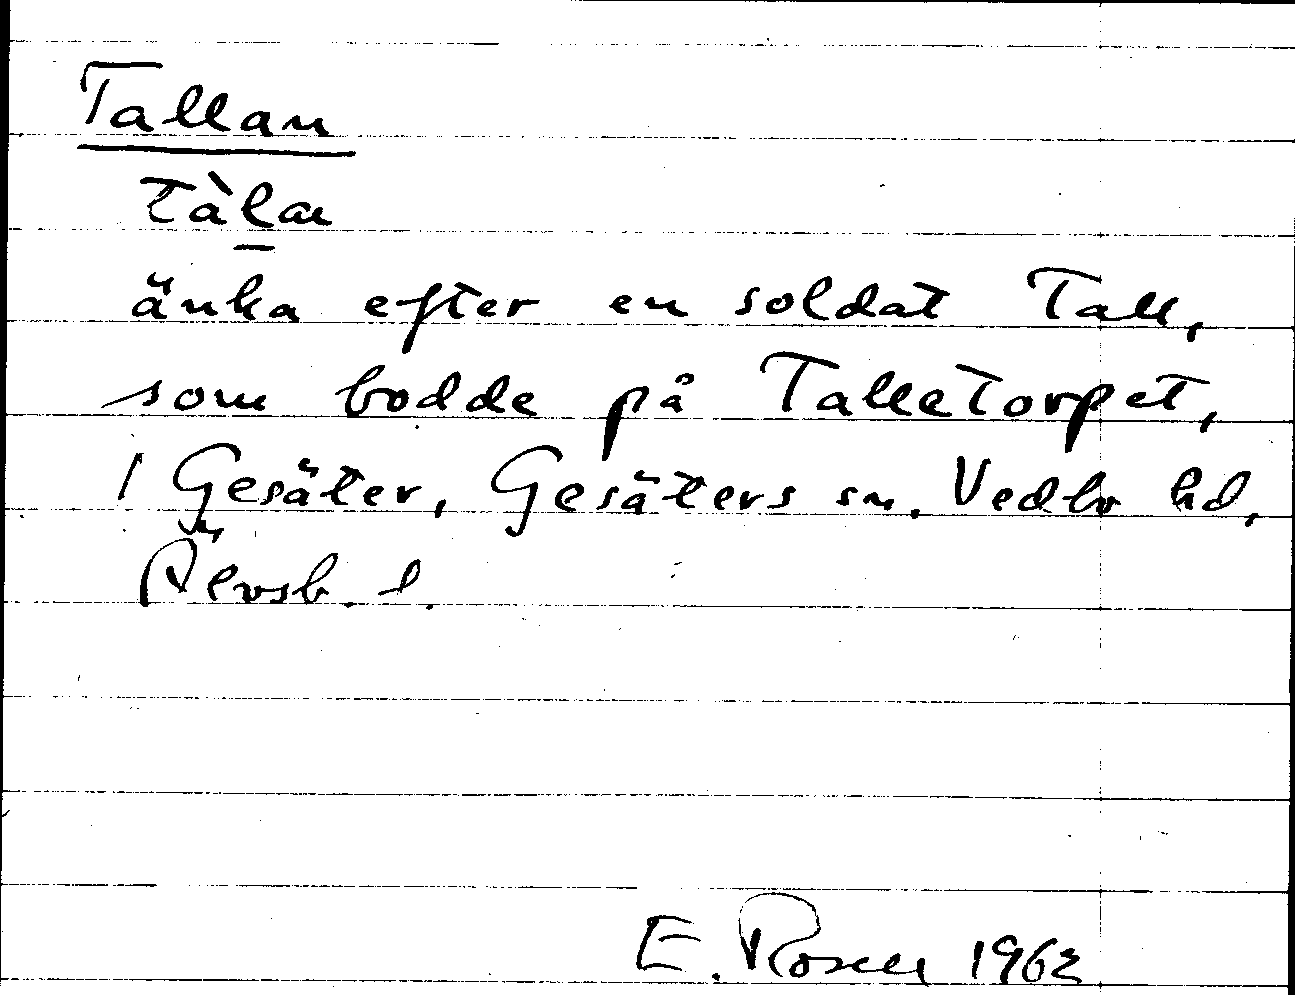 Tallan
tàl̲an
änka efter en soldat Tall,
som bodde på Talletorpet,
1 Gesäter, Gesäters sn. Vedbo hd,
Älvsb. l.
E. Rosell 1962